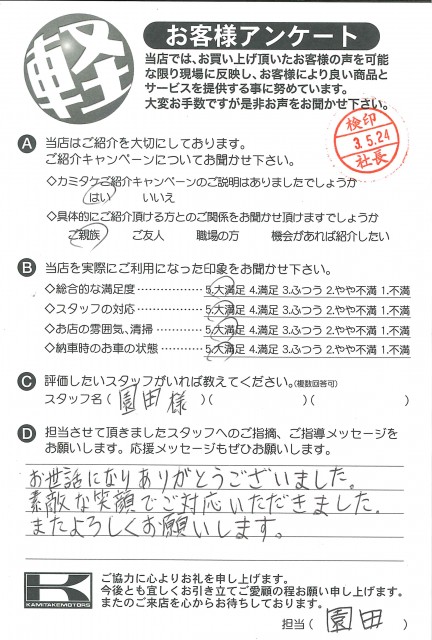 軽
お客様アンケート
当店では、お買い上げ頂いたお客様の声を可能
な限り現場に反映し、お客様により良い商品と
サービスを提供する事に努めています。
大変お手数ですが是非お声をお聞かせ下さい。
検印
3.5.24
社長
A 当店はご紹介を大切にしております。
ご紹介キャンペーンについてお聞かせ下さい。
◇カミタケご紹介キャンペーンのご説明はありましたでしょうか
はい いいえ
◇具体的にご紹介頂ける方とのご関係をお聞かせ頂けますでしょうか
ご親族 ご友人 職場の方 機会があれば紹介したい
B 当店を実際にご利用になった印象をお聞かせ下さい。
◇総合的な満足度⋯⋯⋯⋯⋯ 5.大満足 4.満足 3.ふつう 2.やや不満 1.不満
◇スタッフの対応⋯⋯⋯⋯⋯ 5.大満足 4.満足 3.ふつう 2.やや不満 1.不満
◇お店の雰囲気、清掃⋯⋯⋯ 5.大満足 4.満足 3.ふつう 2.やや不満 1.不満
◇納車時のお車の状態⋯⋯⋯ 5.大満足 4.満足 3.ふつう 2.やや不満 1.不満
C 評価したいスタッフがいれば教えてください。(複数回答可)
スタッフ名( 園田様 )( )( )
D 担当させて頂きましたスタッフへのご指摘、ご指導メッセージを
お願いします。応援メッセージもぜひお願いします。
お世話になりありがとうございました。
素敵な笑顔でご対応いただきました.
またよろしくお願いします。
K
KAMITAKEMOTORS
ご協力に心よりお礼を申し上げます。
今後とも宜しくお引き立てご愛顧の程お願い申し上げます。
またのご来店を心からお待ちしております。
担当( 園田 )